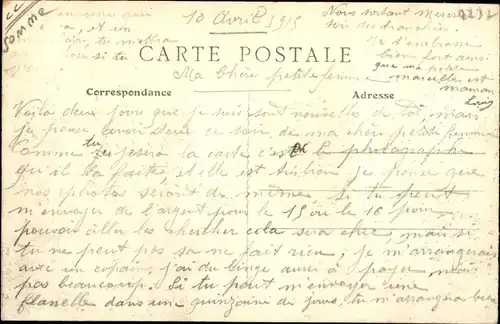 SOMME
10 Avril 1915
Nous sortant Mercredi
soir des tranchées
Je t'embrasse
bien fort ainsi
que ma petite
Marcelle et
maman
Louis
et un
tu mettra
si tu
CARTE POSTALE
Ma Chère petite femme
Correspondance
Adresse
Voila deux jours que je suis sant nouvelles de toi, mais
je pense avoir deux ce soir, de ma chère petite femme
Comme tu la carte c'est le philosophe
qu'il la faite, et elle est très bien je pense que
nos photos seront de même, si tu peut
m'envoyer de l'argent pour le 15 ou le 16 pour
pouvoir aller les chercher cela sera chic, mais si
tu ne peut pas sa ne fait rien, je m'arrangerais
avec un copain, j'ai du linge aussi à payer mais
pas beaucoup. Si tu peut m'envoyer une
flanelle dans une quinzaine de jours, tu m'arrangera bien